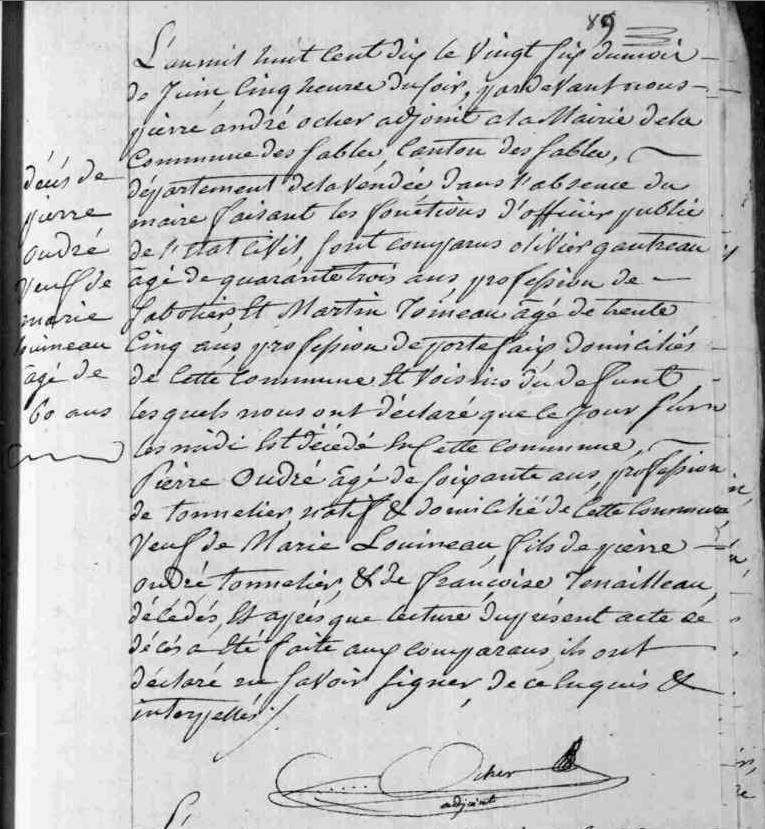 89
L'an mil huit cent dix le vingt six du mois
de Juin cinq heures du soir, pardevant nous
pierre andré ocher adjoint a la Mairie de la
Commune des sables, Canton des sables,
département de la Vendée dans l'absence du
maire faisant les fonctions d'officier public
de l'état civil, sont comparus olivier gautreau
âgé de quarante trois ans, profession de
Sabotier, et Martin âgé de trente
Cinq ans, profession de portefaix domiciliés
de cette commune et voisins du defunt,
lesquels nous ont déclaré que le Jour
midi est décédé en cette commune,
Pierre Oudré âgé de soixante ans, profession
de tonnelier, natif & domicilié de cette Commune
Veuf de Marie Louineau, fils de pierre
oudré, tonnelier, & de françoise Tenailleau,
décédés, et après que lecture du présent acte de
décès a été faite aux comparans, ils ont
déclaré ne savoir signer, de ce enquis &
interpellés
décès de
pierre
oudré
veuf de
marie
Louineau
âgé de
60 ans
Ocher
adjoint